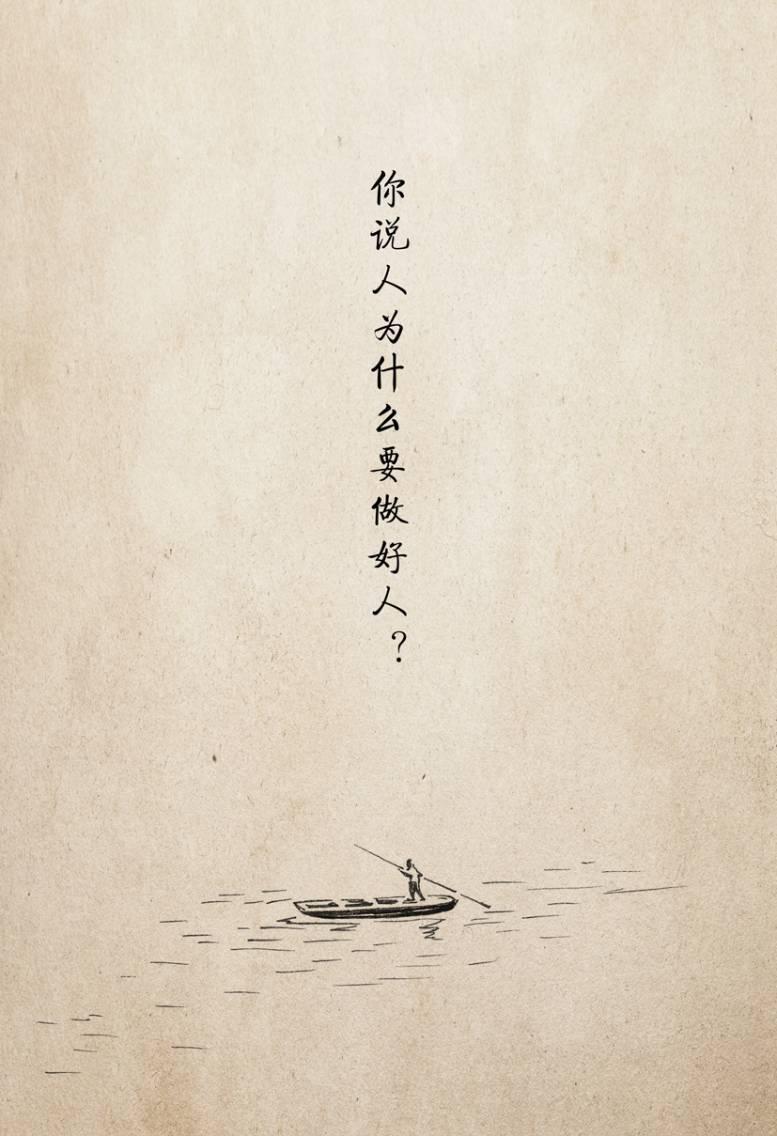 你说人为什么要做好人？